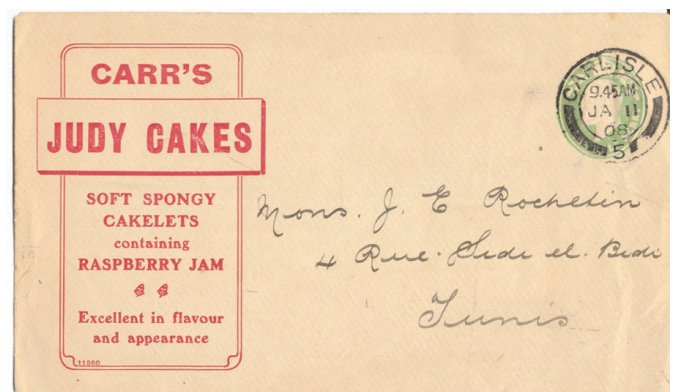 CARR'S
JUDY CAKES
SOFT SPONGY
CAKELETS
containing
RASPBERRY JAM
Excellent in flavour
and appearance
11960
CARLISLE
9.45AM
JA 11
08
5
Mons. J. E Rochetin
4 Rue. Sidi el. Bedi
Tunis